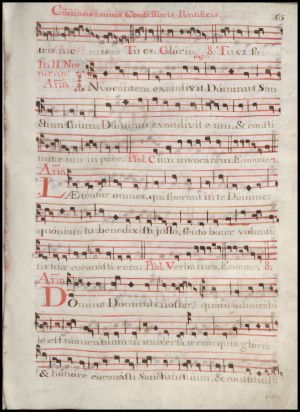 Com̃une unius Confessoris Pontificis. 65
tris mei. Tu es. Gloria. 8. Tu es
In II Noc
turno. Aña
INvocantem exaudivit Dominus San
ctum suum, Dominus exaudivit eum, & consti
tuit eum in pace. Psal. Cum invocarem. Euouae. 7.
Aña
LÆtentur omnes, qui sperant in te Domine,
quoniam tu benedixisti justo, scuto bonæ volunta
tis tuæ coronasti eum. Psal. Verba mea. Euouae. 8.
Aña
DOmine Dominus noster, quam admirabi
le est nomen tuum in universa terra: quia gloria
& honore coronasti Sanctum tuum, & constituisti